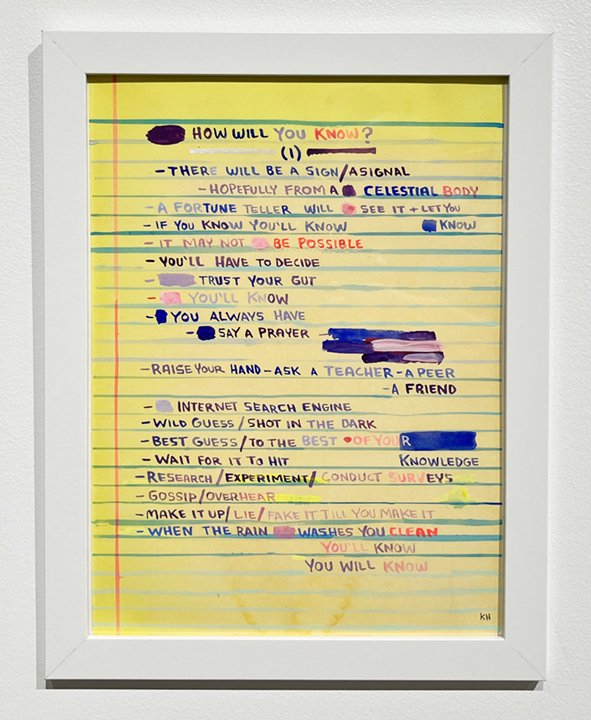 HOW WILL YOU KNOW?
(1)
- THERE WILL BE A SIGN/A SIGNAL
- HOPEFULLY FROM A CELESTIAL BODY
- A FORTUNE TELLER WILL SEE IT + LET YOU
KNOW
- IF YOU KNOW YOU'LL KNOW
- IT MAY NOT BE POSSIBLE
- YOU'LL HAVE TO DECIDE
- TRUST YOUR GUT
- YOU'LL KNOW
- YOU ALWAYS HAVE
- SAY A PRAYER
- RAISE YOUR HAND - ASK A TEACHER - A PEER
- A FRIEND
- INTERNET SEARCH ENGINE
- WILD GUESS/SHOT IN THE DARK
- BEST GUESS/TO THE BEST OF YOUR
KNOWLEDGE
- WAIT FOR IT TO HIT
- RESEARCH/EXPERIMENT/CONDUCT SURVEYS
- GOSSIP/OVERHEAR
- MAKE IT UP/LIE/FAKE IT TILL YOU MAKE IT
- WHEN THE RAIN WASHES YOU CLEAN
YOU'LL KNOW
YOU WILL KNOW
KH